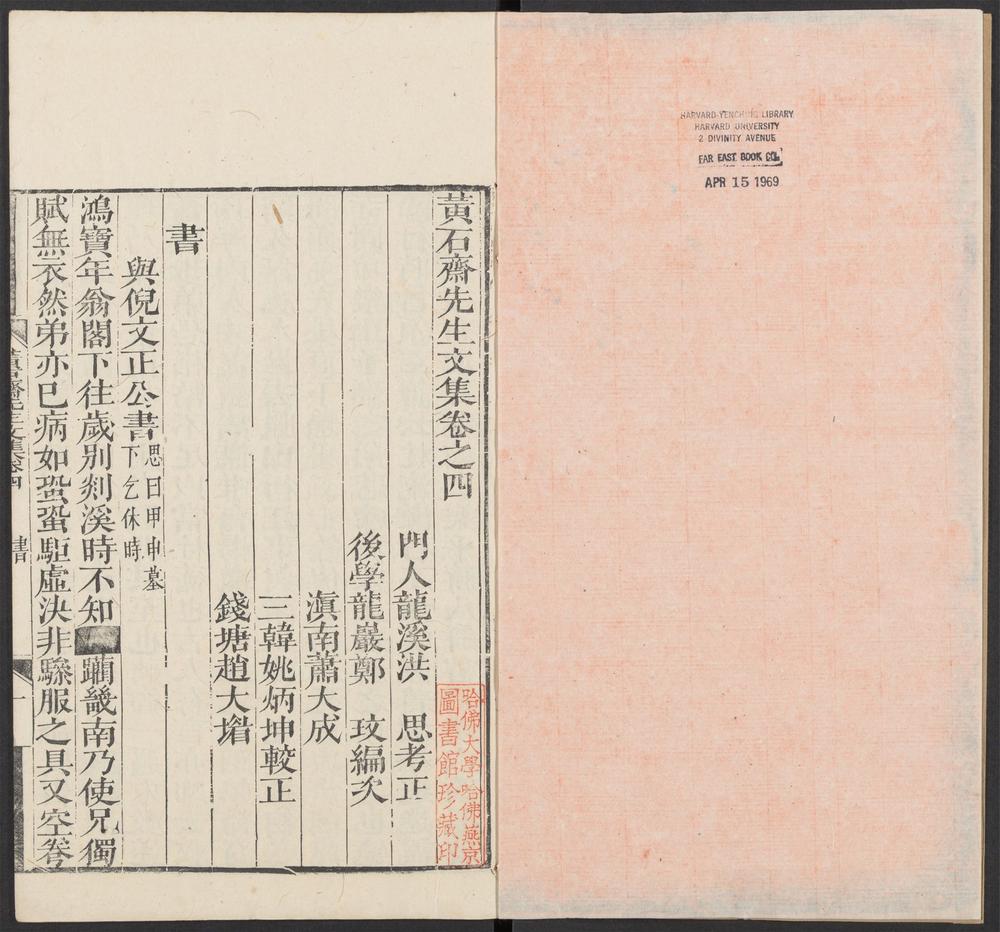 HARVARD-YENCHING LIBRARY
HARVARD UNIVERSITY
2 DIVINITY AVENUE
FAR EAST BOOK CO.
APR 15 1969
黃石齋先生文集卷之四
門人龍溪洪 思考正
後學龍巖鄭 玟編次
滇南蕭大成
三韓姚炳坤較正
錢塘趙大堦
書
與倪文正公書 思曰甲申墓
下乞休時
鴻寶年翁閣下往歲別剡溪時不知 躪畿南乃使兄獨
賦無衣然弟亦巳病如蛩蛩駏虛決非驂服之具又空弮
黃石齋先生文集卷四
書
一
哈佛大學哈佛燕京
圖書館珍藏印